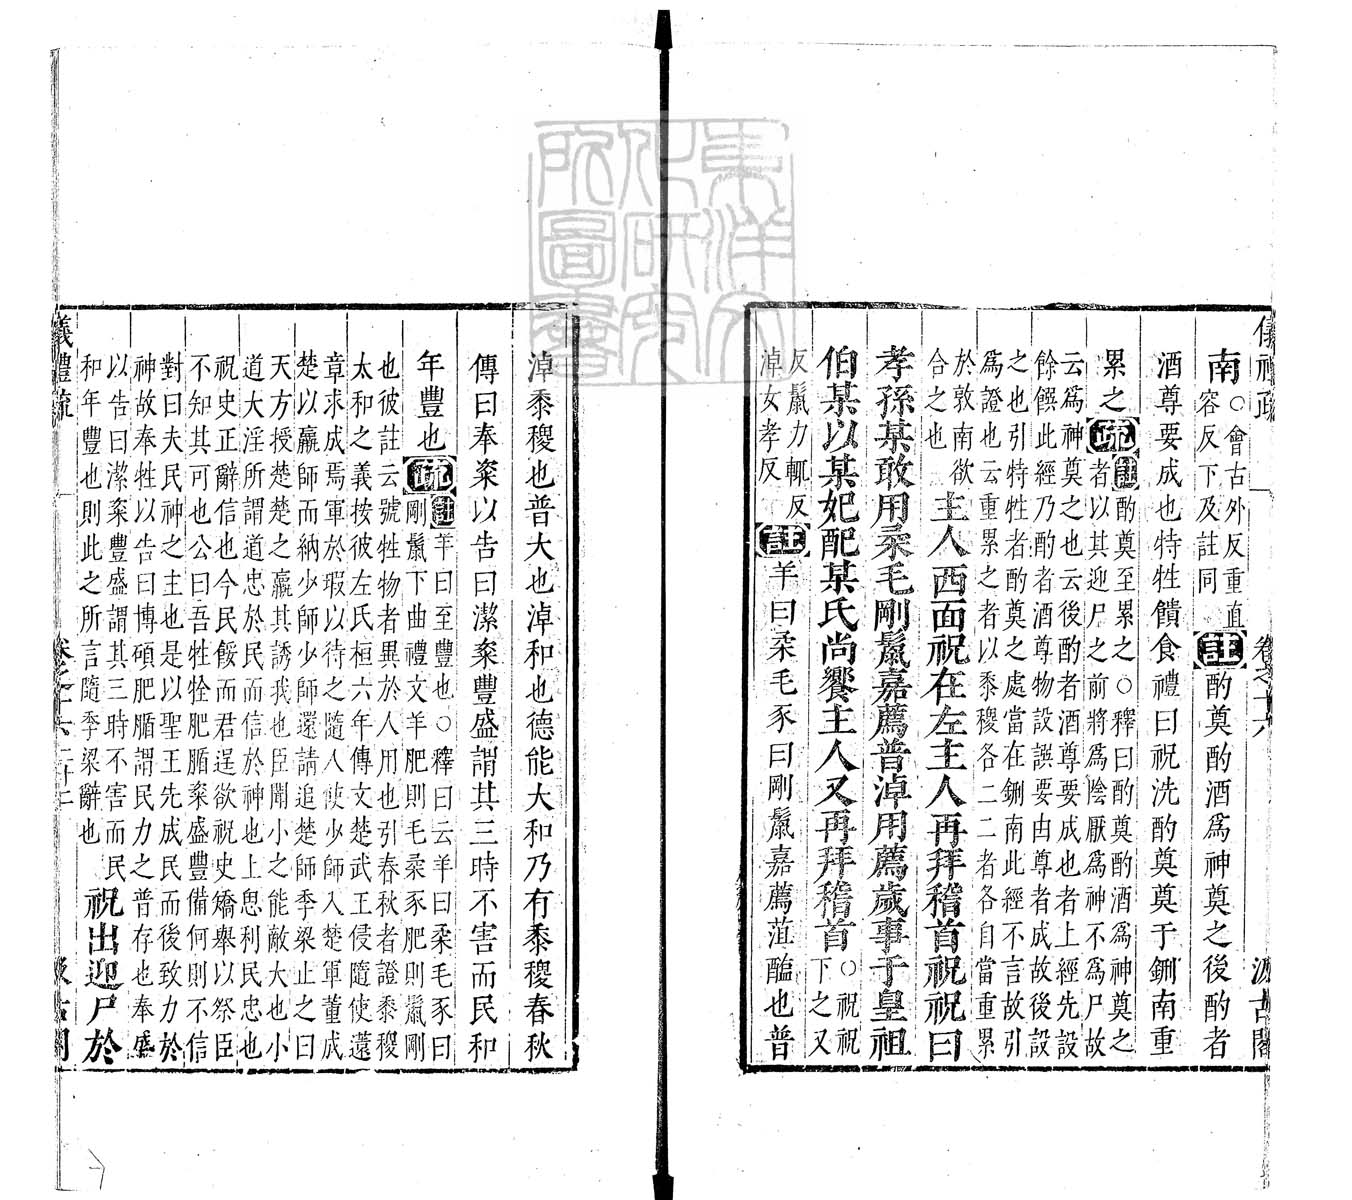 儀禮疏 卷之十六 汲古閣
南○會古外反重直
容反下及註同註酌奠酌酒爲神奠之後酌者
酒尊要成也特牲饋食禮曰祝洗酌奠奠于鉶南重
累之疏註酌奠至累之○釋曰酌奠酌酒爲神奠之
者以其迎尸之前將爲陰厭爲神不爲尸故
云爲神奠之也云後酌者酒尊要成也者上經先設
餘饌此經乃酌者酒尊物設饌要由尊者成故後設
之也引特牲者酌奠之處當在鉶南此經不言故引
爲證也云重累之者以黍稷各二二者各自當重累
於敦南欲
合之也主人西面祝在左主人再拜稽首祝祝曰
孝孫某敢用柔毛剛鬣嘉薦普淖用薦歲事于皇祖
伯某以某妃配某氏尚饗主人又再拜稽首○祝祝
下之又
反鬣力輒反
淖女孝反註羊曰柔毛豕曰剛鬣嘉薦菹醢也普
淖黍稷也普大也淖和也德能大和乃有黍稷春秋
傳曰奉粢以告曰潔粢豐盛謂其三時不害而民和
年豐也疏註羊曰至豐也○釋曰云羊曰柔毛豕曰
剛鬣下曲禮文羊肥則毛柔豕肥則鬣剛
也彼註云號牲物者異於人用也引春秋者證黍稷
太和之義按彼左氏桓六年傳文楚武王侵隨使薳
章求成焉軍於瑕以待之隨人使少師入楚軍董成
楚以羸師而納少師少師還請追楚師季梁止之曰
天方授楚楚之羸其誘我也臣聞小之能敵大也小
道大淫所謂道忠於民而信於神也上思利民忠也
祝史正辭信也今民餒而君逞欲祝史矯舉以祭臣
不知其可也公曰吾牲牷肥腯粢盛豐備何則不信
對曰夫民神之主也是以聖王先成民而後致力於
神故奉牲以告曰博碩肥腯謂民力之普存也奉盛
以告曰潔粢豐盛謂其三時不害而民
和年豐也則此之所言隨季梁辭也祝出迎尸於
儀禮疏 卷之十六 汲古閣
東洋文化研究所圖書